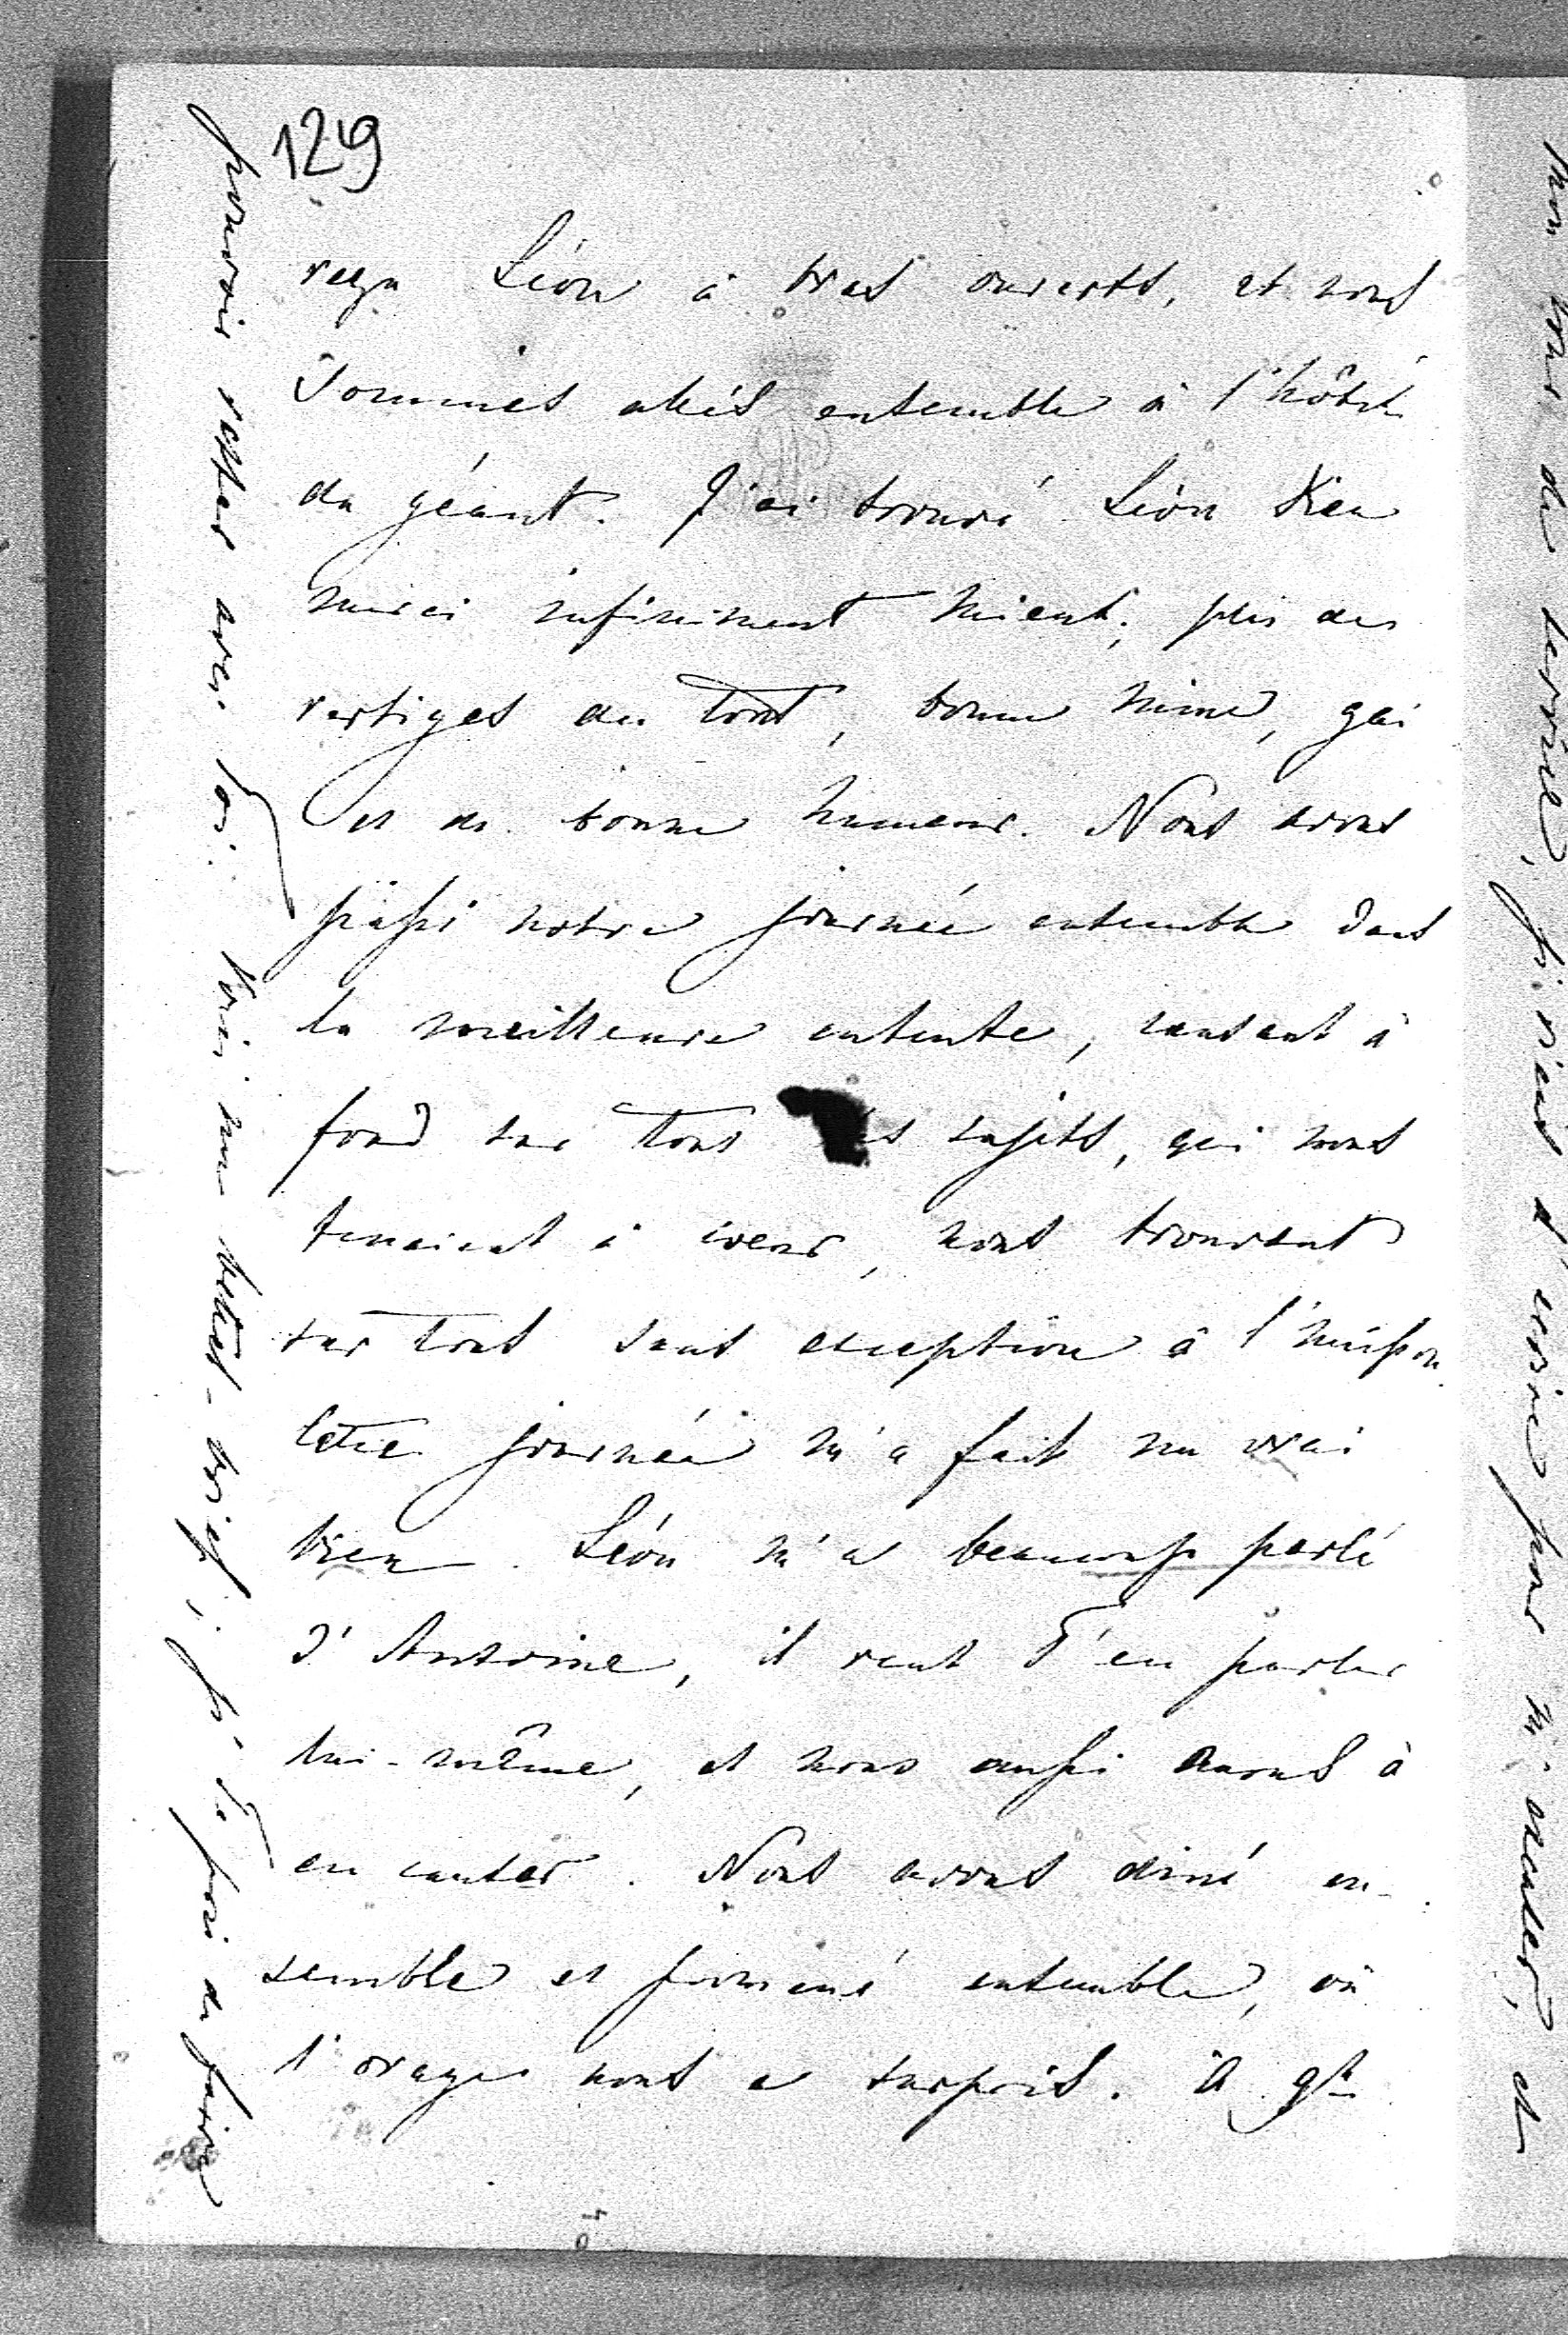 129
reçu Léon à bras ouverts, et nous
sommes allés ensemble à l'hôtel
du géant. J'ai trouvé Léon Dieu
merci infiniment mieux; plus des
vertiges du tout, bonne mine, gai
et de bonne humeur. Nous avons
passé notre journée ensemble dans
la meilleure entente, causant à
fond sur tous les sujets, qui nous
tenaient à cœur, nous trouvant
sur tout sans exception à l'unisson.
Cette journée m'a fait un vrai
bien. Léon m'a beaucoup parlé
d'Antoine, il veut t'en parler
lui-même, et nous aussi avons à
en causer. Nous avons diné en-
semble et promené ensemble, où
l'orage nous a surpris. A 9h
pouvoir rester avec toi. Voici une lettre-brief; je te prie de faire